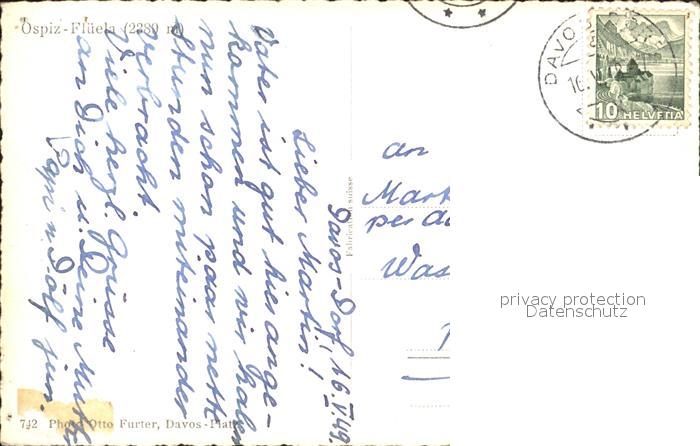 Ospiz-Flüela (2389 m)
Davos-Dorf, 16.VI.49.
Lieber Martin!
Vater ist gut hier ange-
kommen und wir haben
nun schon paar nette
Stunden miteinander
verbracht.
Viele herzl. Grüsse
an Dich u. Deine Mutter
Papi u. Dölf jun.
742 Photo Otto Furter, Davos-Platz
Fabrication suisse
an
Mart
per
Was
DAVOS
16.VI
10 HELVETIA
privacy protection
Datenschutz